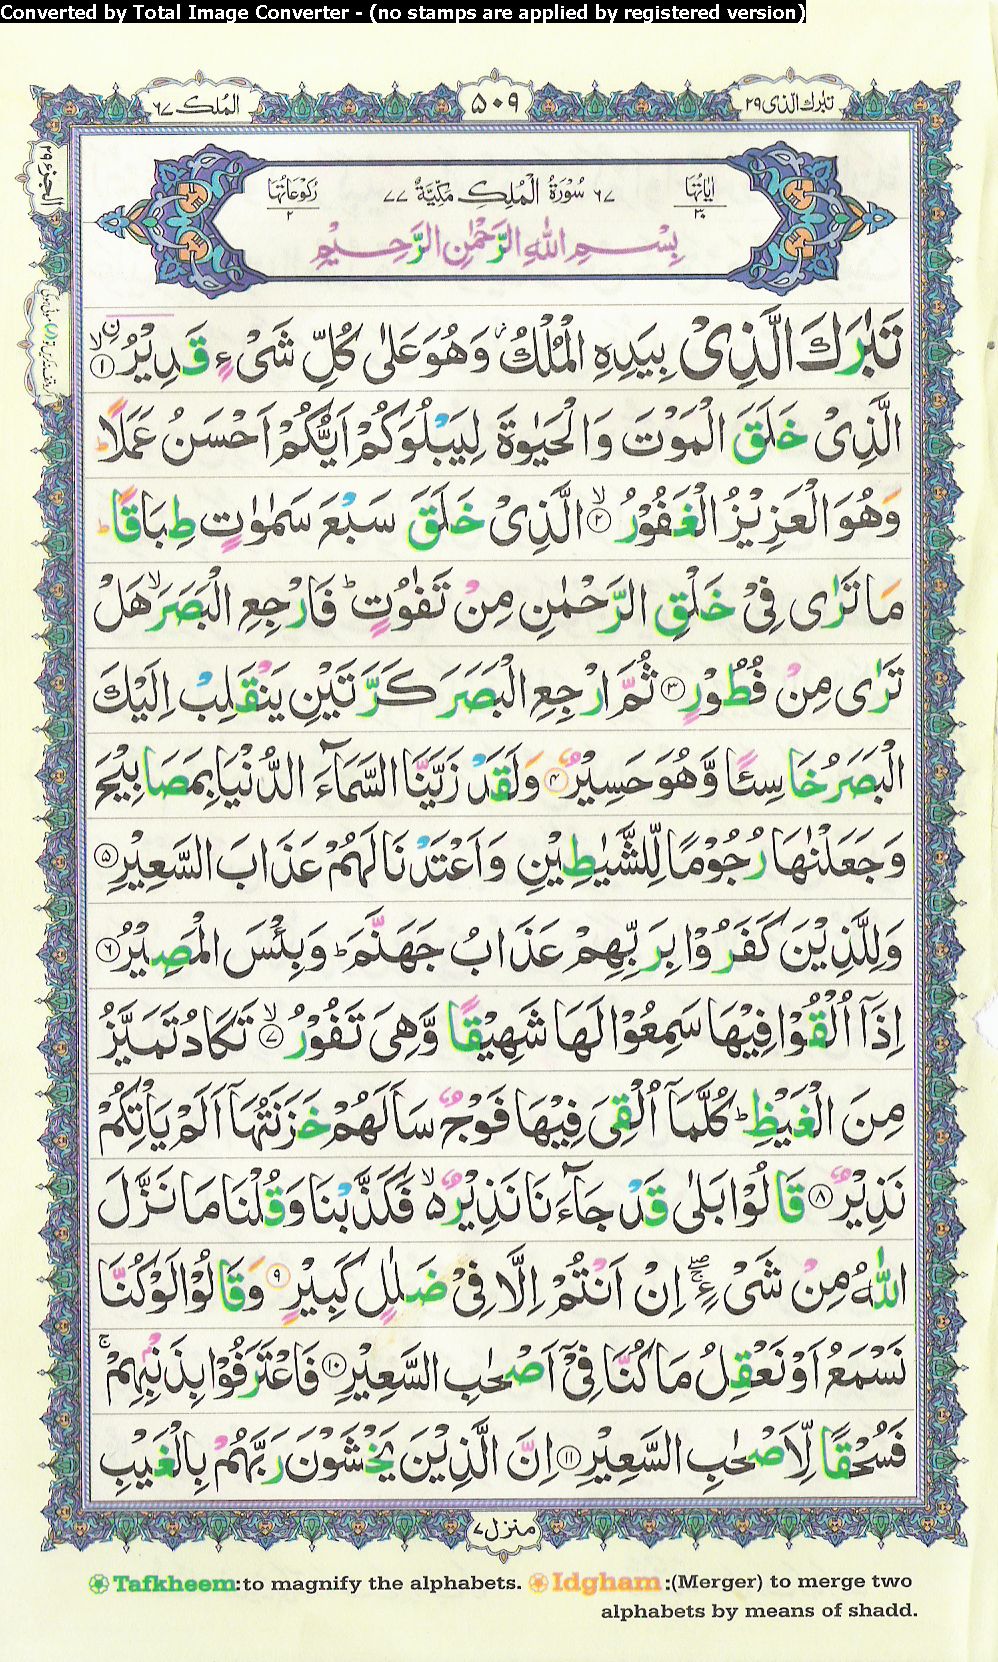 Converted by Total Image Converter - (no stamps are applied by registered version)
تبٰرك الذی ۲۹
۵۰۹
الملك ۶۷
الجزء ۲۹
اٰیاتها ۳۰
۶۷ سُوْرَةُ الْمُلْكِ مَكِّیَّةٌ ۷۷
رُكُوْعَاتُهَا ۲
بِسْمِ اللّٰهِ الرَّحْمٰنِ الرَّحِیْمِ
تَبٰرَكَ الَّذِیْ بِیَدِهِ الْمُلْكُ ؗ وَهُوَ عَلٰی كُلِّ شَیْءٍ قَدِیْرُۙنِ ۱
الَّذِیْ خَلَقَ الْمَوْتَ وَالْحَیٰوةَ لِیَبْلُوَكُمْ اَیُّكُمْ اَحْسَنُ عَمَلًا ؕ
وَهُوَ الْعَزِیْزُ الْغَفُوْرُ ۙ۲ الَّذِیْ خَلَقَ سَبْعَ سَمٰوٰتٍ طِبَاقًا ؕ
مَا تَرٰی فِیْ خَلْقِ الرَّحْمٰنِ مِنْ تَفٰوُتٍ ؕ فَارْجِعِ الْبَصَرَ ۙ هَلْ
تَرٰی مِنْ فُطُوْرٍ ۳ ثُمَّ ارْجِعِ الْبَصَرَ كَرَّتَیْنِ یَنْقَلِبْ اِلَیْكَ
الْبَصَرُ خَاسِئًا وَّهُوَ حَسِیْرٌ ۴ وَلَقَدْ زَیَّنَّا السَّمَآءَ الدُّنْیَا بِمَصَابِیْحَ
وَجَعَلْنٰهَا رُجُوْمًا لِّلشَّیٰطِیْنِ وَاَعْتَدْنَا لَهُمْ عَذَابَ السَّعِیْرِ ۵
وَلِلَّذِیْنَ كَفَرُوْا بِرَبِّهِمْ عَذَابُ جَهَنَّمَ ؕ وَبِئْسَ الْمَصِیْرُ ۶
اِذَاۤ اُلْقُوْا فِیْهَا سَمِعُوْا لَهَا شَهِیْقًا وَّهِیَ تَفُوْرُ ۙ۷ تَكَادُ تَمَیَّزُ
مِنَ الْغَیْظِ ؕ كُلَّمَاۤ اُلْقِیَ فِیْهَا فَوْجٌ سَاَلَهُمْ خَزَنَتُهَاۤ اَلَمْ یَاْتِكُمْ
نَذِیْرٌ ۸ قَالُوْا بَلٰی قَدْ جَآءَنَا نَذِیْرٌ ۙ۬ فَكَذَّبْنَا وَقُلْنَا مَا نَزَّلَ
اللّٰهُ مِنْ شَیْءٍ ۚۖ اِنْ اَنْتُمْ اِلَّا فِیْ ضَلٰلٍ كَبِیْرٍ ۹ وَقَالُوْا لَوْ كُنَّا
نَسْمَعُ اَوْ نَعْقِلُ مَا كُنَّا فِیْۤ اَصْحٰبِ السَّعِیْرِ ۱۰ فَاعْتَرَفُوْا بِذَنْۢبِهِمْ ۚ
فَسُحْقًا لِّاَصْحٰبِ السَّعِیْرِ ۱۱ اِنَّ الَّذِیْنَ یَخْشَوْنَ رَبَّهُمْ بِالْغَیْبِ
منزل ۷
Tafkheem: to magnify the alphabets. Idgham :(Merger) to merge two
alphabets by means of shadd.